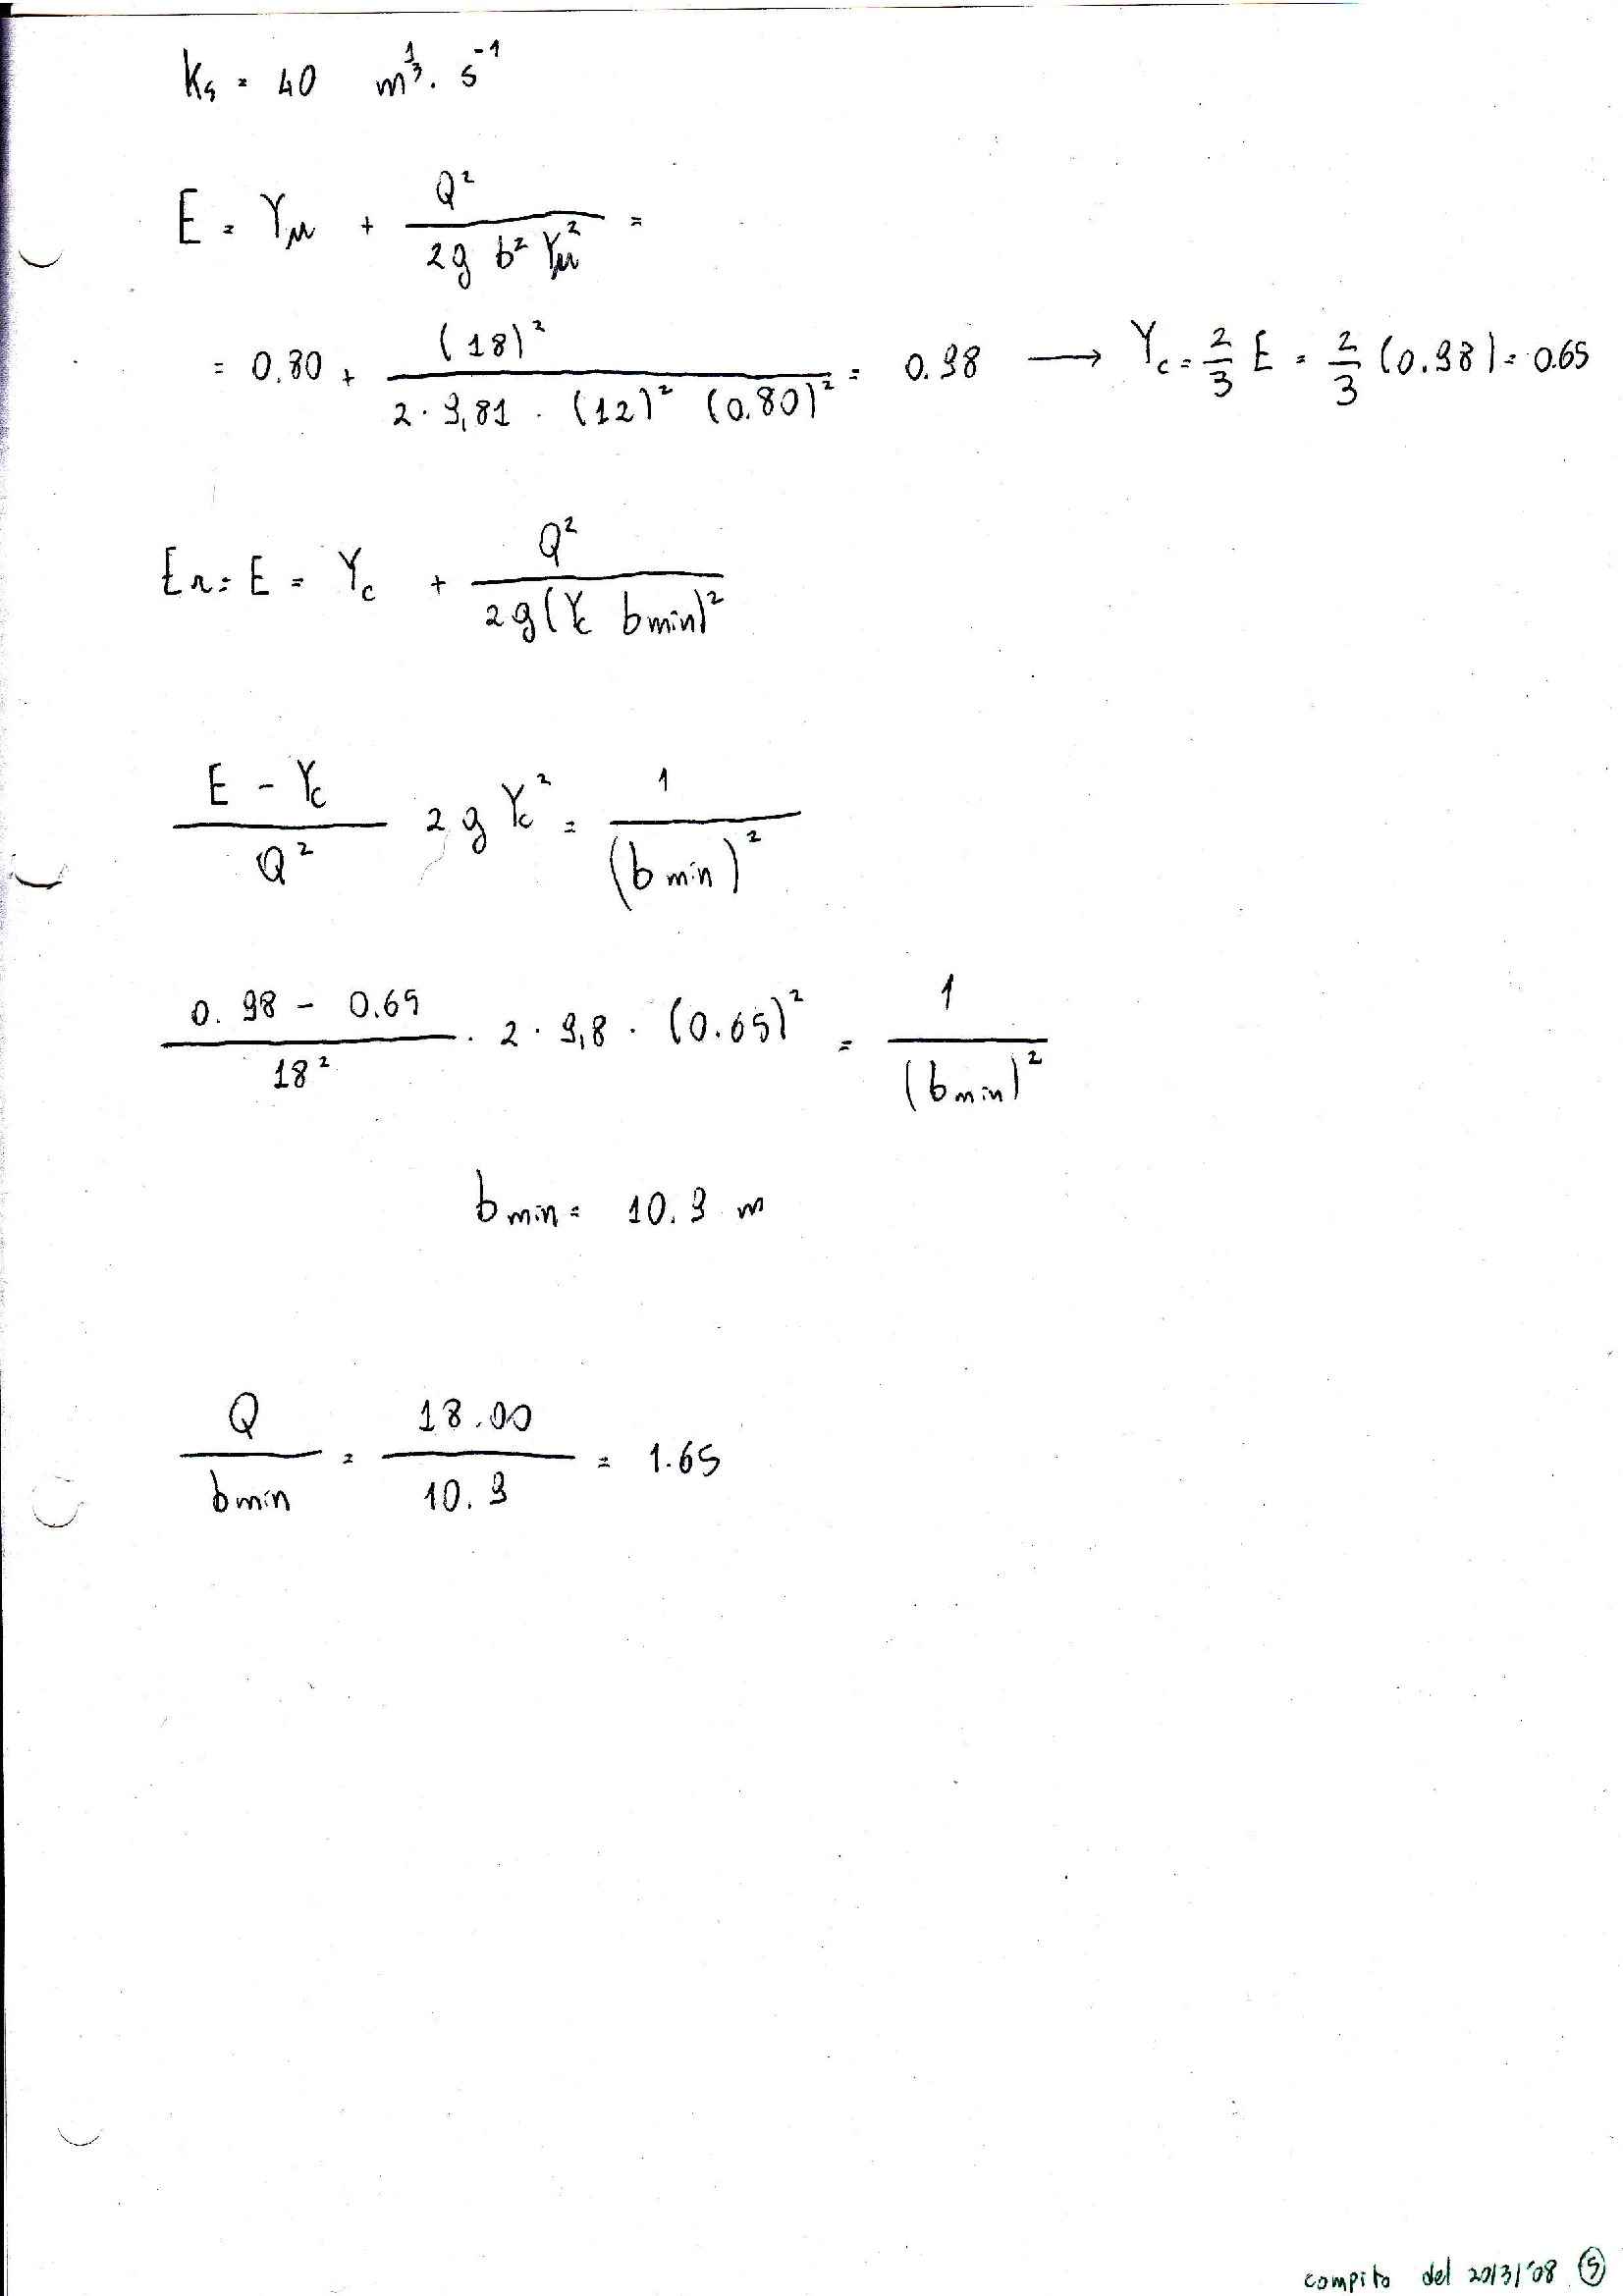 Ks = 40 m^1/3 . s^-1
E = Yu + Q² / (2g b² Yu²) =
= 0.80 + (18)² / (2 · 9,81 · (12)² (0.80)²) = 0.98 → Yc = 2/3 E = 2/3 (0.98) = 0.65
Er = E = Yc + Q² / (2g (Yc bmin)²)
(E - Yc) / Q² 2g Yc² = 1 / (bmin)²
(0.98 - 0.65) / 18² · 2 · 9,8 · (0.65)² = 1 / (bmin)²
bmin = 10.9 m
Q / bmin = 18.00 / 10.9 = 1.65
compito del 20/3/'08 (5)